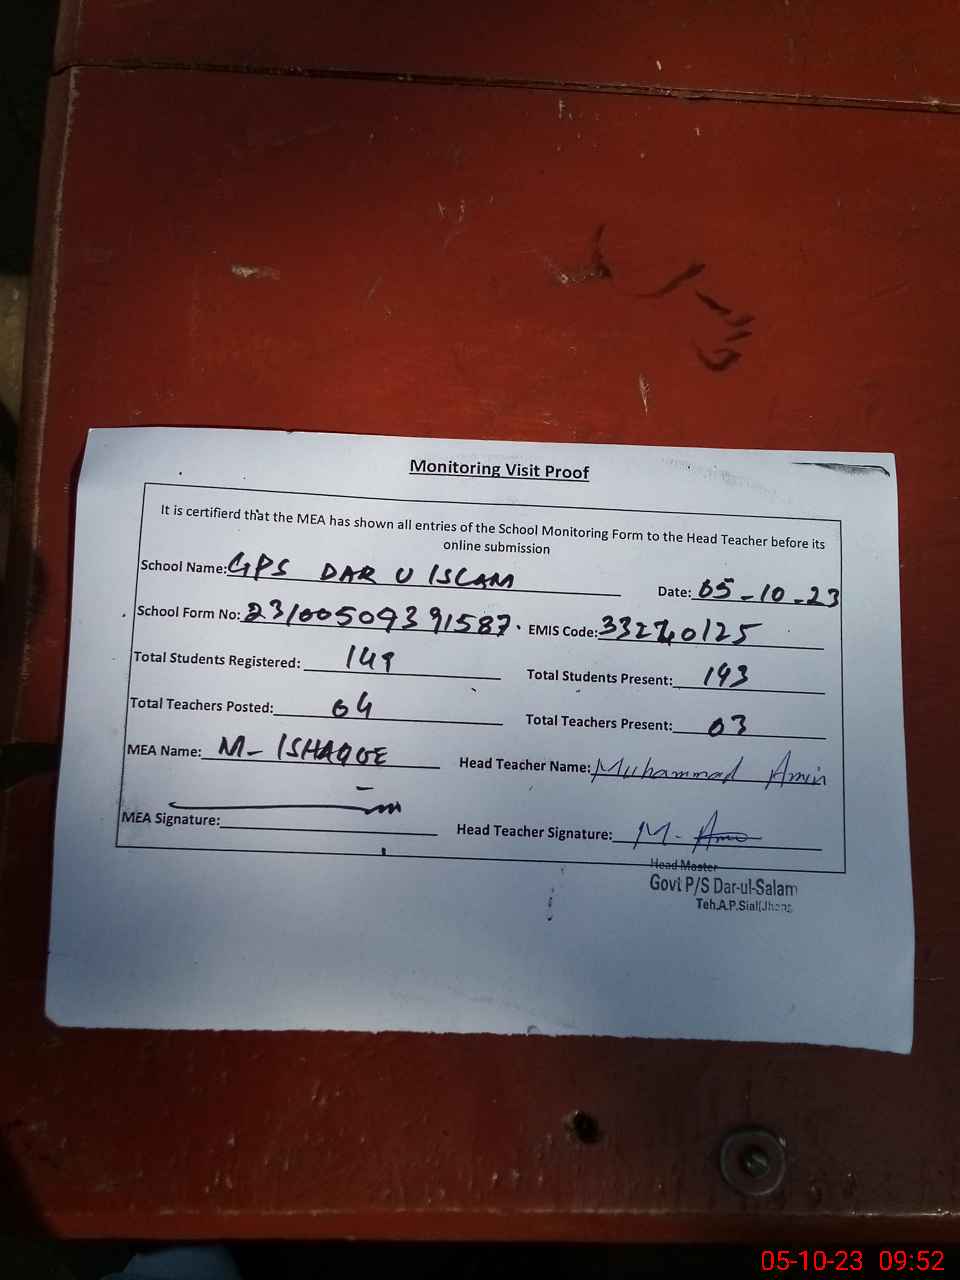 Monitoring Visit Proof
It is certifierd that the MEA has shown all entries of the School Monitoring Form to the Head Teacher before its
online submission
School Name: GPS DAR U ISLAM Date: 05-10-23
School Form No: 23100509391587. EMIS Code: 33240125
Total Students Registered: 149 Total Students Present: 143
Total Teachers Posted: 04 Total Teachers Present: 03
MEA Name: M- ISHAQUE Head Teacher Name: Muhammad Amin
MEA Signature: Head Teacher Signature: M. Amin
Head Master
Govt P/S Dar-ul-Salam
Teh.A.P.Sial(Jhang
05-10-23 09:52